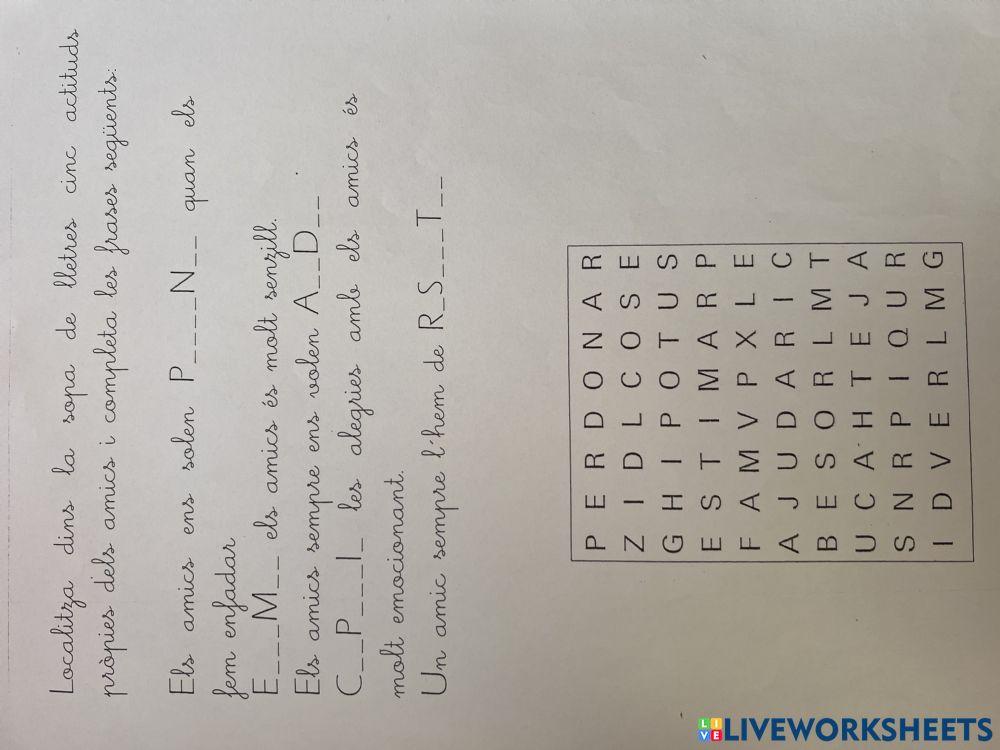 Localitza dins la sopa de lletres cinc actituds
pròpies dels amics i completa les frases següents:
Els amics ens solen P____N__ quan els
fem enfadar
E___M__ els amics és molt senzill.
Els amics sempre ens volen A__D__.
C__P___I_ les alegries amb els amics és
molt emocionant.
Un amic sempre l'hem de R_S___T__
P E R D O N A R
Z I D L C O S E
G H I P O T U S
E S T I M A R P
F A M V P X L E
A J U D A R I C
B E S O R L M T
U C A H T E J A
S N R P I Q U R
I D V E R L M G
LIVEWORKSHEETS